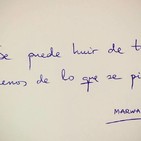 Se puede huir de t
enos de lo que se pi
MARWA